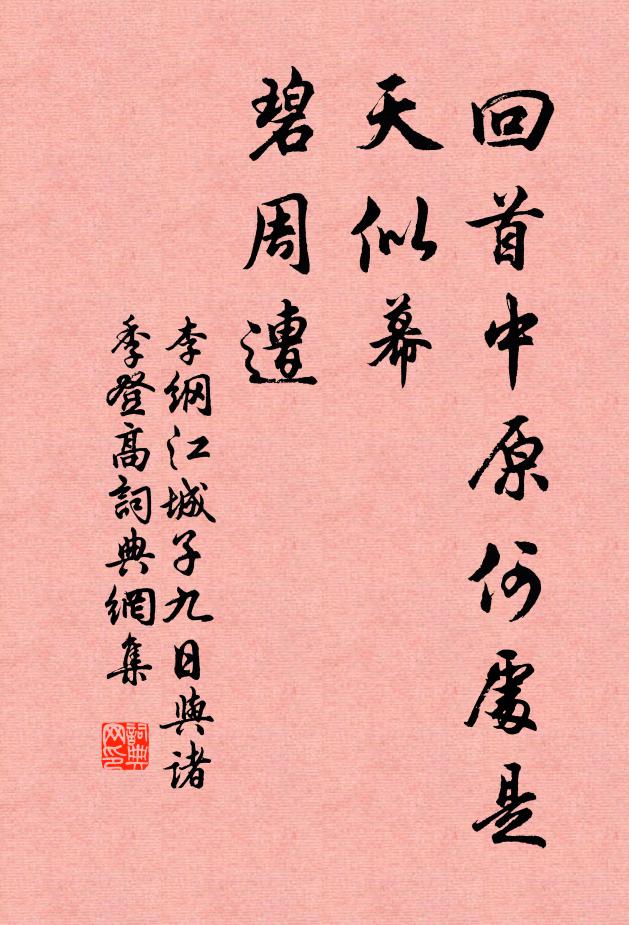 回首中原何處是
天似幕
碧周遭
李綱江城子九日與諸
季登高詞典網集
詞典网印